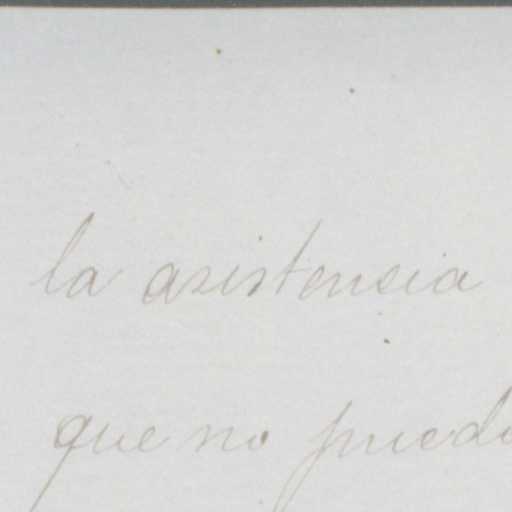 la asistencia
que no puedo